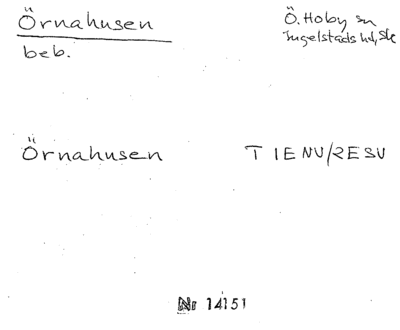 Örnahusen
Ö. Hoby sn
Ingelstads hd, Sk
beb.
Örnahusen
T IENV/RESV
Nr 14151